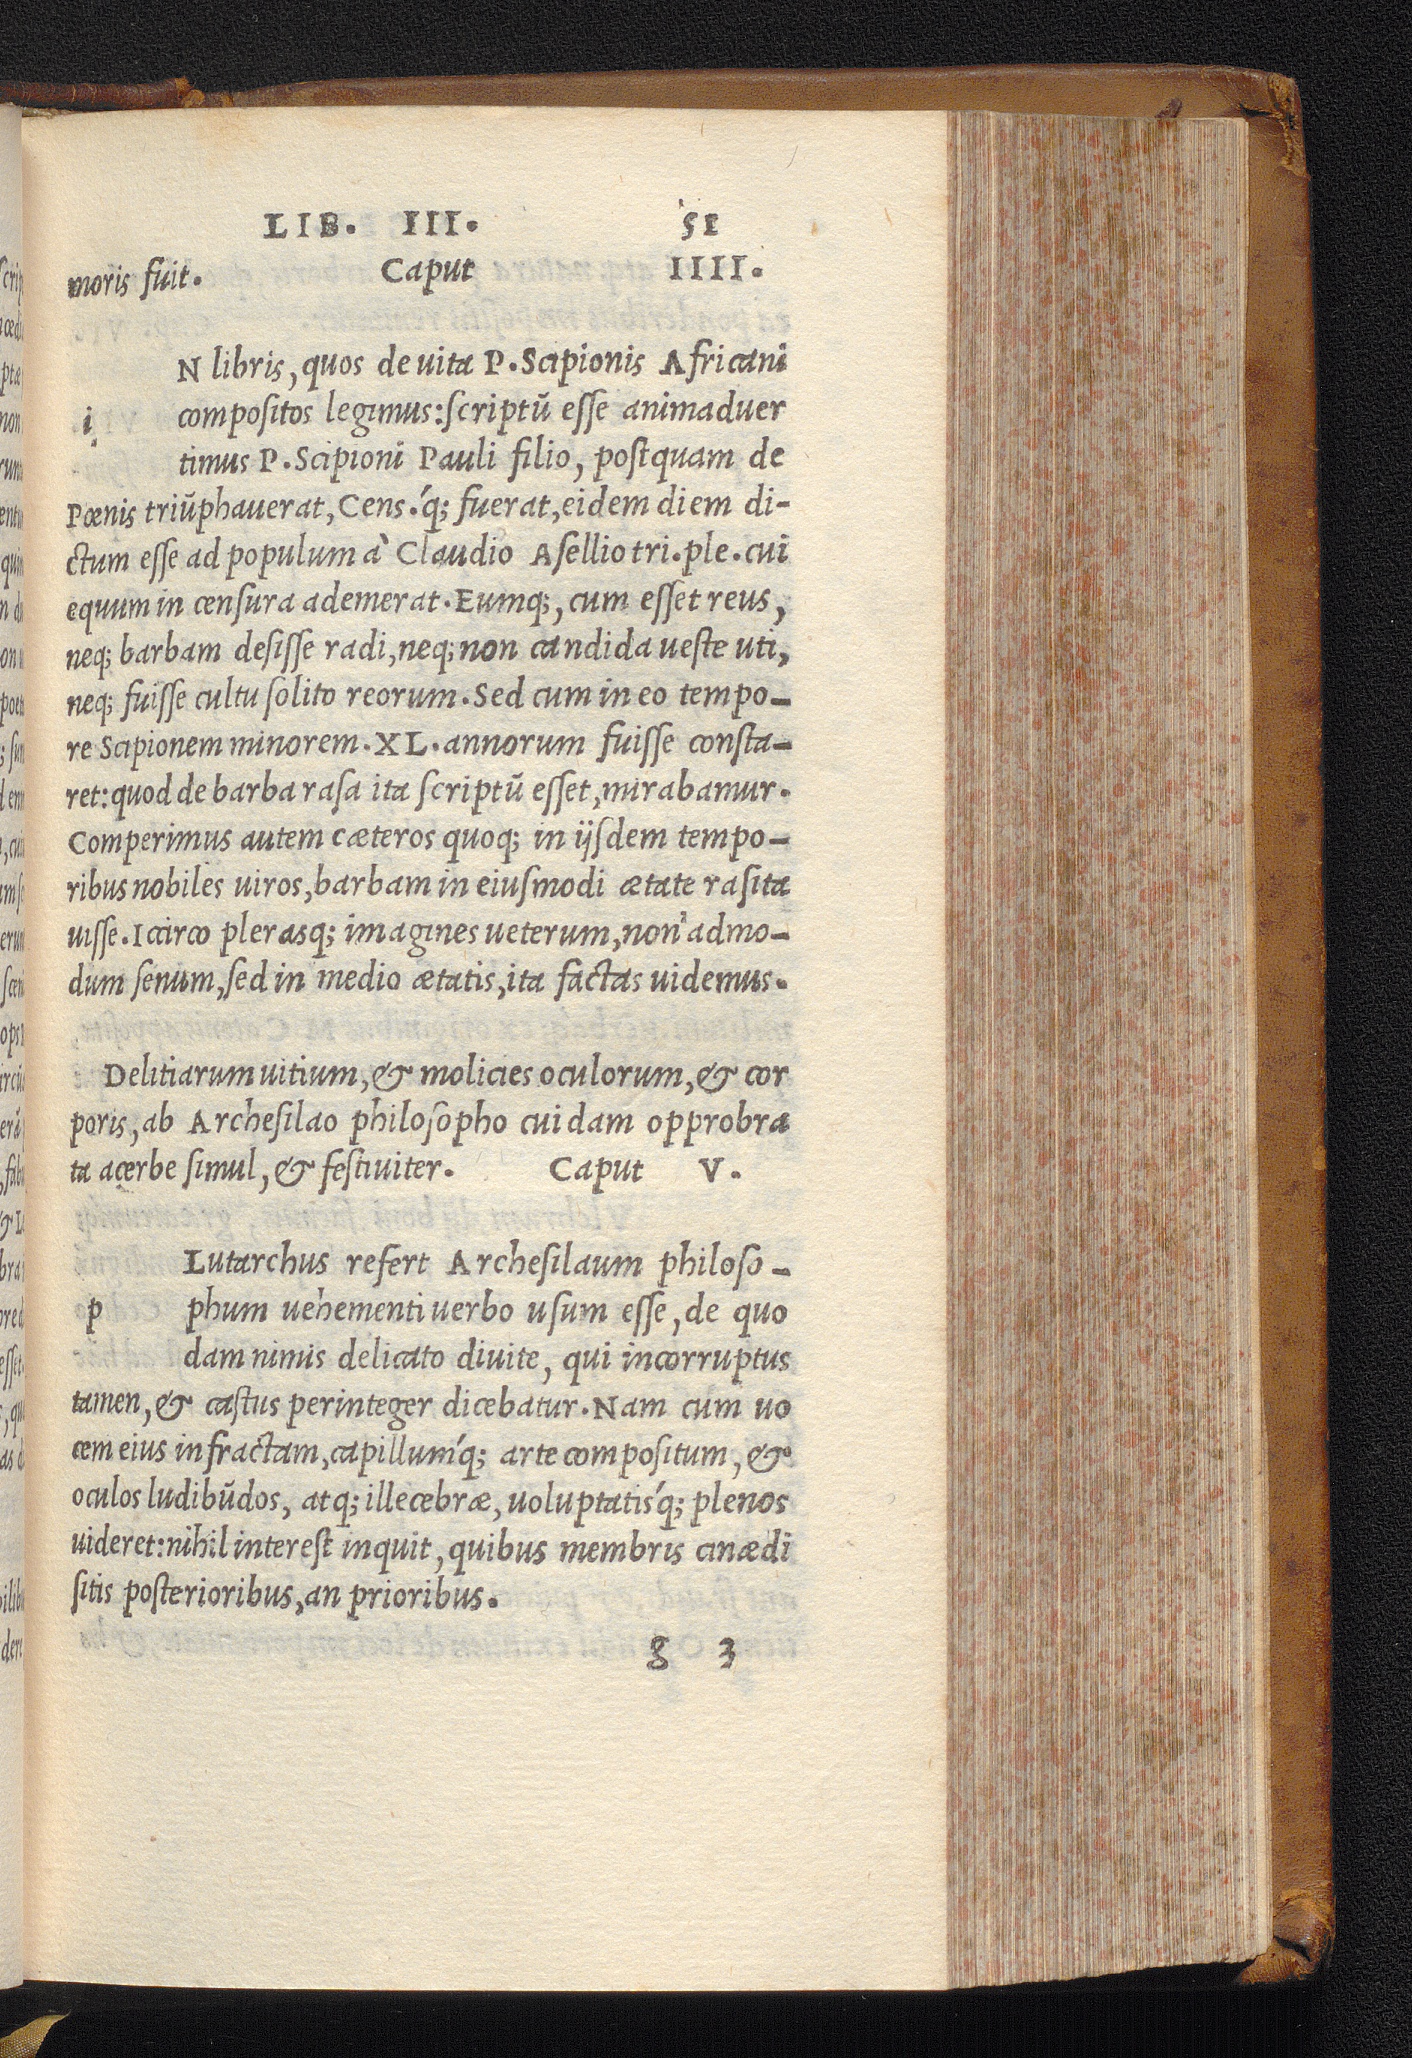 LIB. III. 51
moris fuit. Caput IIII.
N libris, quos de uita P. Scipionis Africani
i compositos legimus: scriptũ esse animaduer
timus P. Scipioni Pauli filio, postquam de
Pœnis triũphauerat, Cens.q́; fuerat, eidem diem di-
ctum esse ad populum à Claudio Asellio tri. ple. cui
equum in censura ademerat. Eumq;, cum esset reus,
neq; barbam desisse radi, neq; non candida ueste uti,
neq; fuisse cultu solito reorum. Sed cum in eo tempo-
re Scipionem minorem. XL. annorum fuisse consta-
ret: quod de barba rasa ita scriptũ esset, mirabamur.
Comperimus autem cæteros quoq; in ijsdem tempo-
ribus nobiles uiros, barbam in eiusmodi ætate rasita
uisse. Iccirco plerasq; imagines ueterum, non admo-
dum senum, sed in medio ætatis, ita factas uidemus.
Delitiarum uitium, & molicies oculorum, & cor
poris, ab Archesilao philosopho cuidam opprobra
ta acerbe simul, & festiuiter. Caput V.
Lutarchus refert Archesilaum philoso-
p phum uehementi uerbo usum esse, de quo
dam nimis delicato diuite, qui incorruptus
tamen, & castus perinteger dicebatur. Nam cum uo
cem eius infractam, capillumq́; arte compositum, &
oculos ludibũdos, atq; illecebræ, uoluptatisq́; plenos
uideret: nihil interest inquit, quibus membris cinædi
sitis posterioribus, an prioribus.
g 3